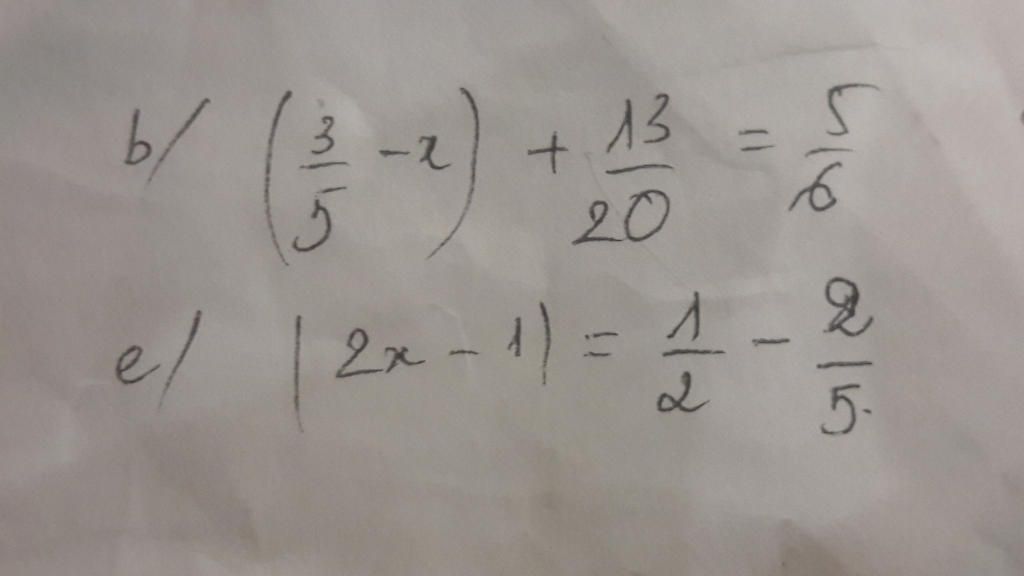 b/ (3/5 - x) + 13/20 = 5/6
e/ |2x - 1| = 1/2 - 2/5